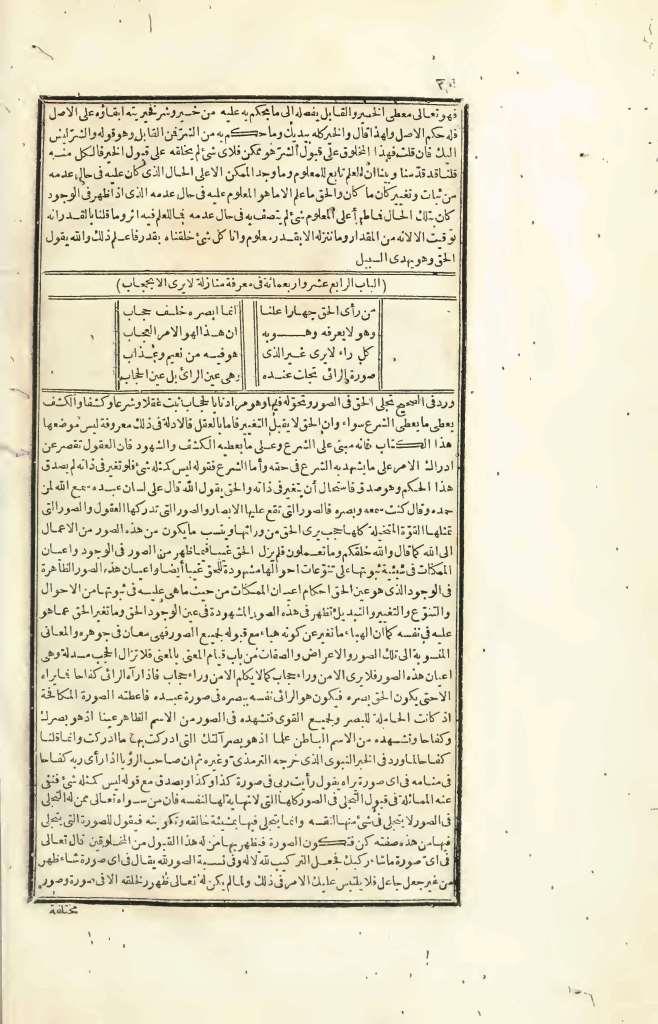 فهو تعالى معطى الخير والقابل يفصله الى ما يحكم به عليه من خير وشر فخيريته ابقاؤه على الاصل
فله حكم الاصل ولهذا قال والخير كله بيديك وما حكم به من الشر فمن القابل وهو قوله والشر ليس
اليك فان قلت فهذا المخلوق على قبول الشر هو ممكن فلاى شئ لم يخلقه على قبول الخير فالكل منه
قلنا قد قدمنا وبينا ان العلم تابع للمعلوم وما وجد الممكن الا على الحال الذى كان عليه فى حال عدمه
من ثبات وتغيير كان ما كان والحق ما علم الا ما هو المعلوم عليه فى حال عدمه الذى اذا ظهر فى الوجود
كان بتلك الحال فما طرأ على المعلوم شئ لم يتصف به فى حال عدمه فما للعلم فيه اثر وما قلنا بالقدر انه
توقيت الا لانه من المقدار وما ننزله الا بقدر معلوم وانا كل شئ خلقناه بقدر فاعلم ذلك والله يقول
الحق وهو يهدى السبيل
(الباب الرابع عشر واربعمائة فى معرفة منازلة لا يرى الا بحجاب)
من رأى الحق جهارا علنا انما ابصره خلف حجاب
وهو لا يعرفه وهو به ان هذا لهو الامر العجاب
كل راء لا يرى غير الذى هو فيه من نعيم وعذاب
صورة الرائى تجلت عنده وهى عين الرائ بل عين الحجاب
ورد فى الصحيح تجلى الحق فى الصور وتحوله فيها وهو مرادنا بالحجاب ثبت عقلا وشرعا وكشفا والكشف
يعطى ما يعطى الشرع سواء وان الحق لا يقبل التغيير فاما بالعقل فالادلة فى ذلك معروفة ليس موضعها
هذا الكتاب فانه مبنى على الشرع وعلى ما يعطيه الكشف والشهود فان العقول تقصر عن
ادراك الامر على ما يشهد به الشرع فى حقه وأما الشرع فقوله ليس كمثله شئ فلو تغير فى ذاته لم يصدق
هذا الحكم وهو صدق فاستحال أن يتغير فى ذاته والحق يقول الله قال على لسان عبده سمع الله لمن
حمده وقال كنت سمعه وبصره فالصور التى تقع عليها الابصار والصور التى تدركها العقول والصور التى
تمثلها القوة المتخيلة كلها حجب يرى الحق من ورائها وينسب ما يكون من هذه الصور من الاعمال
الى الله كما قال والله خلقكم وما تعملون فلم يزل الحق غيبا فيما ظهر من الصور فى الوجود واعيان
الممكنات فى شيئية ثبوتها على تنوعات احوالها مشهودة للحق غيبا أيضا واعيان هذه الصور الظاهرة
فى الوجود الذى هو عين الحق احكام اعيان الممكنات من حيث ما هى عليه فى ثبوتها من الاحوال
والتنوع والتغيير والتبديل تظهر فى هذه الصور المشهودة فى عين الوجود الحق وما تغير الحق عما هو
عليه فى نفسه كما ان الهباء ما تغير عن كونه هباء مع قبوله لجميع الصور فهى معان فى جوهره والمعانى
المنسوبة الى تلك الصور والاعراض والصفات من باب قيام المعنى بالمعنى فلا تزال الحجب مسدلة وهى
اعيان هذه الصور فلا يرى الا من وراء حجاب كما لا يكلم الا من وراء حجاب فاذا رآه الرائى كفاحا فما يراه
الا حتى يكون الحق بصره فيكون هو الرائى نفسه ببصره فى صورة عبده فاعطته الصورة المكافحة
اذ كانت الحاملة للبصر ولجميع القوى فتشهده فى الصور من الاسم الظاهر عينا اذ هو بصرك
وكفاحا وتشهده من الاسم الباطن علما اذ هو بصر آلتك التى ادركت بها ما ادركت وانما قلنا
كفاحا لما ورد فى الخبر النبوى الذى خرجه الترمذى وغيره ثم ان صاحب الرؤيا اذا رأى ربه كفاحا
فى منامه فى اى صورة يراه يقول رأيت ربى فى صورة كذا وكذا ويصدق مع قوله ليس كمثله شئ فنفى
عنه المماثلة فى قبول التجلى فى الصور كلها التى لا نهاية لها لنفسه فان من سواه تعالى ممن له التجلى
فى الصور لا يتجلى فى شئ منها لنفسه وانما يتجلى فيها بمشيئة خالقه وتكوينه فيقول للصورة التى يتجلى
فيها من هذه صفته كن فتكون الصورة فيظهر بها من له هذا القبول من المخلوقين قال تعالى
فى اى صورة ما شاء ركبك فجعل التركيب لله لا له وفى نسبة الصور لله يقال فى اى صورة شاء ظهر
من غير جعل جاعل فلا يلتبس عليك الامر فى ذلك ولما لم يكن له تعالى ظهور لخلقه الا فى صورة وصور
مختلفة